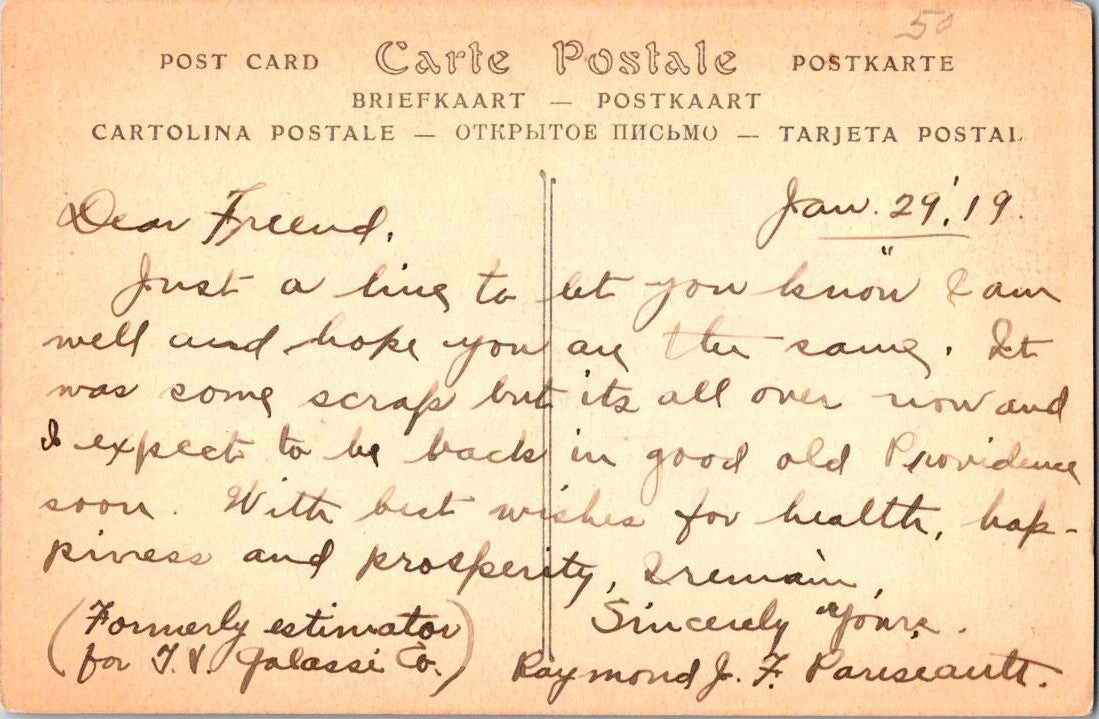 50
POST CARD Carte Postale POSTKARTE
BRIEFKAART — POSTKAART
CARTOLINA POSTALE — ОТКРЫТОЕ ПИСЬМО — TARJETA POSTAL
Jan. 29, '19.
Dear Freend,
Just a line to let you know I am
well and hope you are the same. It
was some scrap but its all over now and
I expect to be back in good old Providence
soon. With best wishes for health, hap-
piness and prosperity, I remain,
Sincerely Yours.
(Formerly estimator
for T. V. Galassi Co.)
Raymond J. F. Pariseault.